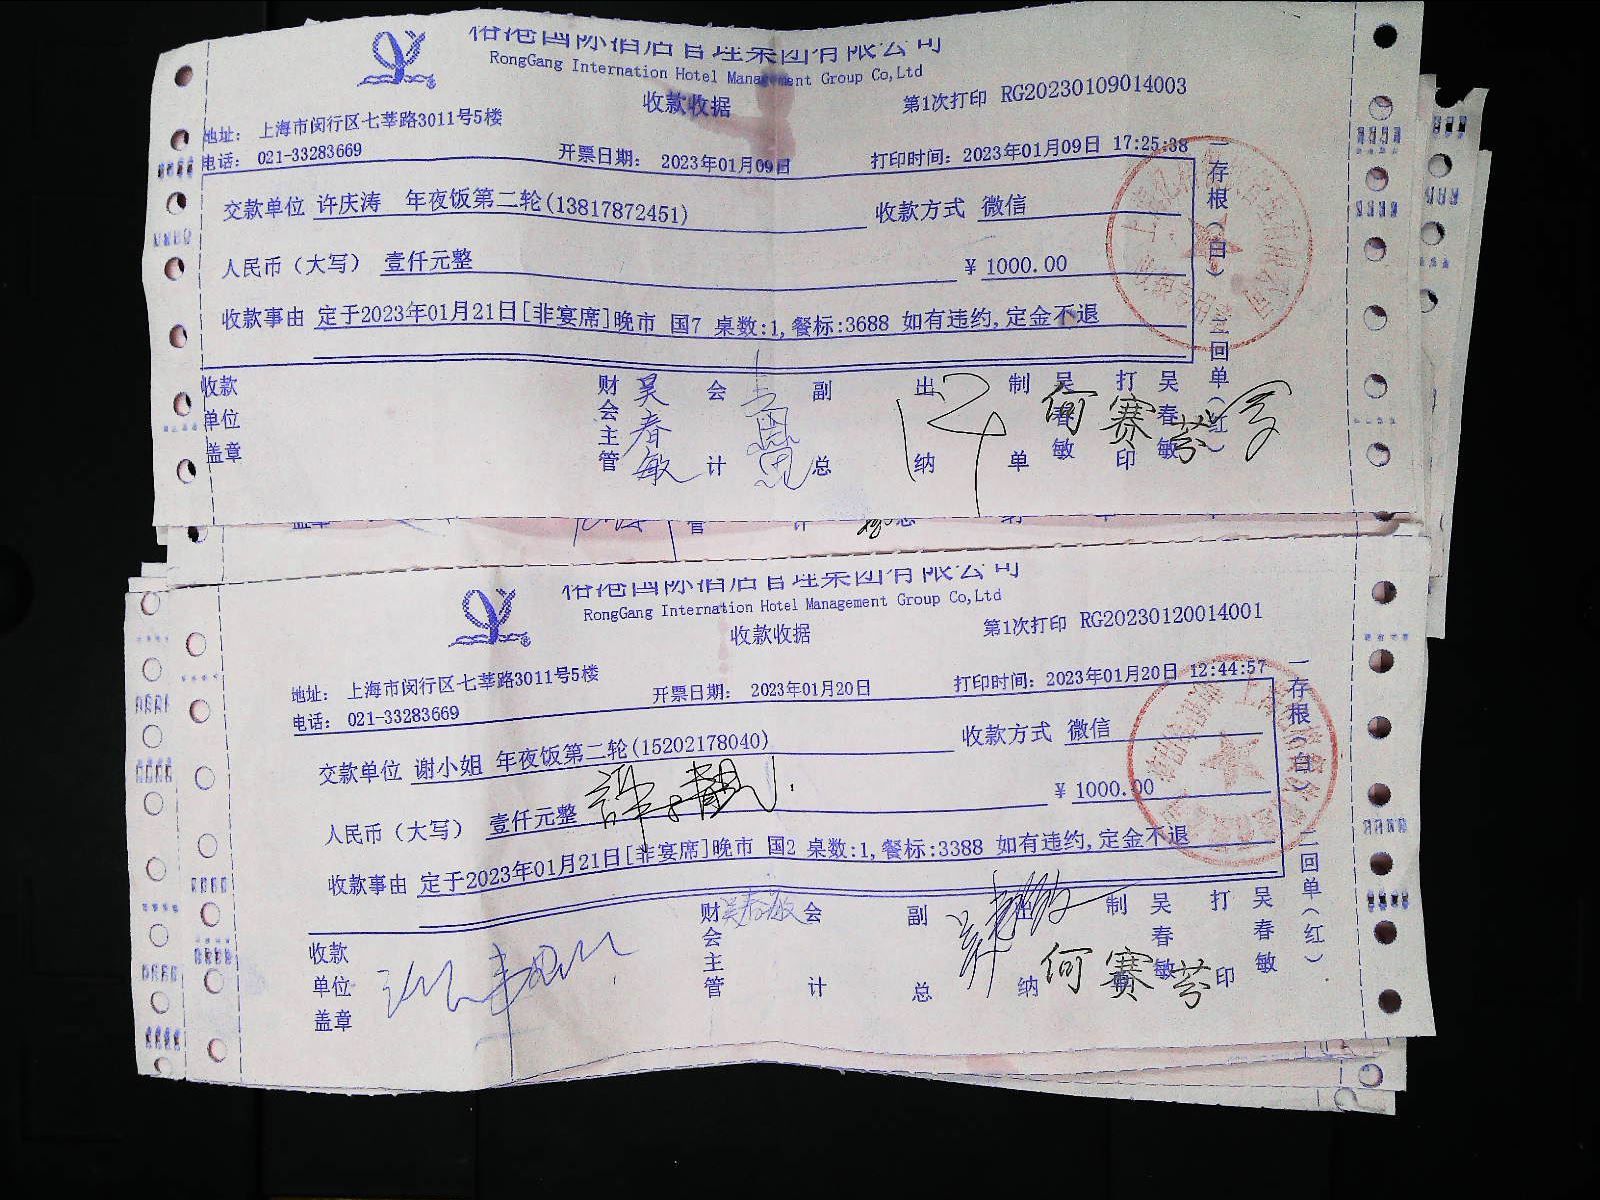 裕港国际酒店管理集团有限公司
RongGang International Hotel Management Group Co,Ltd
收款收据
第1次打印 RG20230109014003
地址: 上海市闵行区七莘路3011号5楼
电话: 021-33283669
开票日期: 2023年01月09日
打印时间: 2023年01月09日 17:25:38
交款单位 许庆涛 年夜饭第二轮(13817872451)
收款方式 微信
人民币（大写） 壹仟元整
¥ 1000.00
收款事由 定于2023年01月21日[非宴席]晚市 国7 桌数:1,餐标:3688 如有违约,定金不退
一存根(白) 二回单(红)
收款单位盖章
财会主管 吴春敏
会计
副总
出纳
制单 吴春敏
何赛芬
打印 吴春敏
裕港国际酒店管理集团有限公司
RongGang International Hotel Management Group Co,Ltd
收款收据
第1次打印 RG20230120014001
地址: 上海市闵行区七莘路3011号5楼
电话: 021-33283669
开票日期: 2023年01月20日
打印时间: 2023年01月20日 12:44:57
交款单位 谢小姐 年夜饭第二轮(15202178040)
收款方式 微信
人民币（大写） 壹仟元整
¥ 1000.00
收款事由 定于2023年01月21日[非宴席]晚市 国2 桌数:1,餐标:3388 如有违约,定金不退
一存根(白) 二回单(红)
收款单位盖章
财会主管 吴春敏
会计
副总
出纳
制单 吴春敏
何赛芬
打印 吴春敏